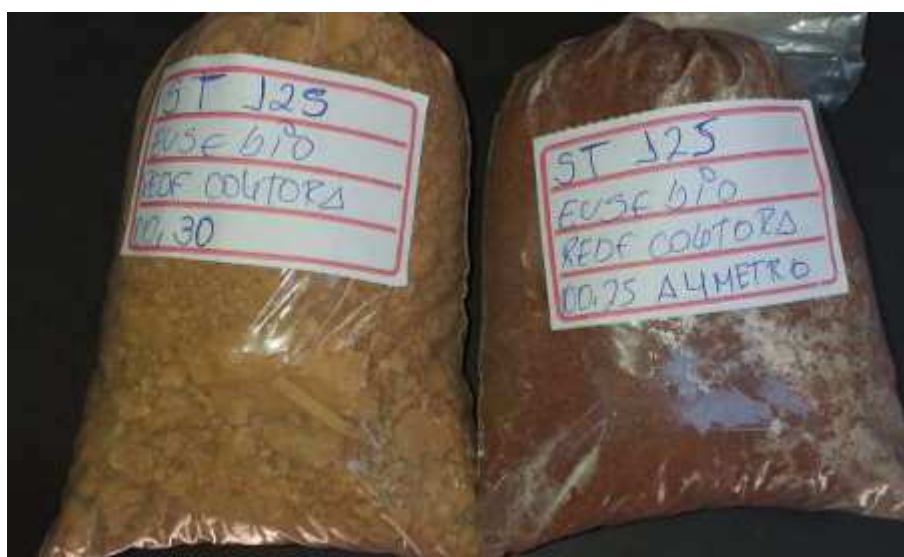 ST 125
EUSEbiO
REDE COLETORA
00,30
ST 125
EUSEbiO
REDE COLETORA
00,25 A 4 METRO